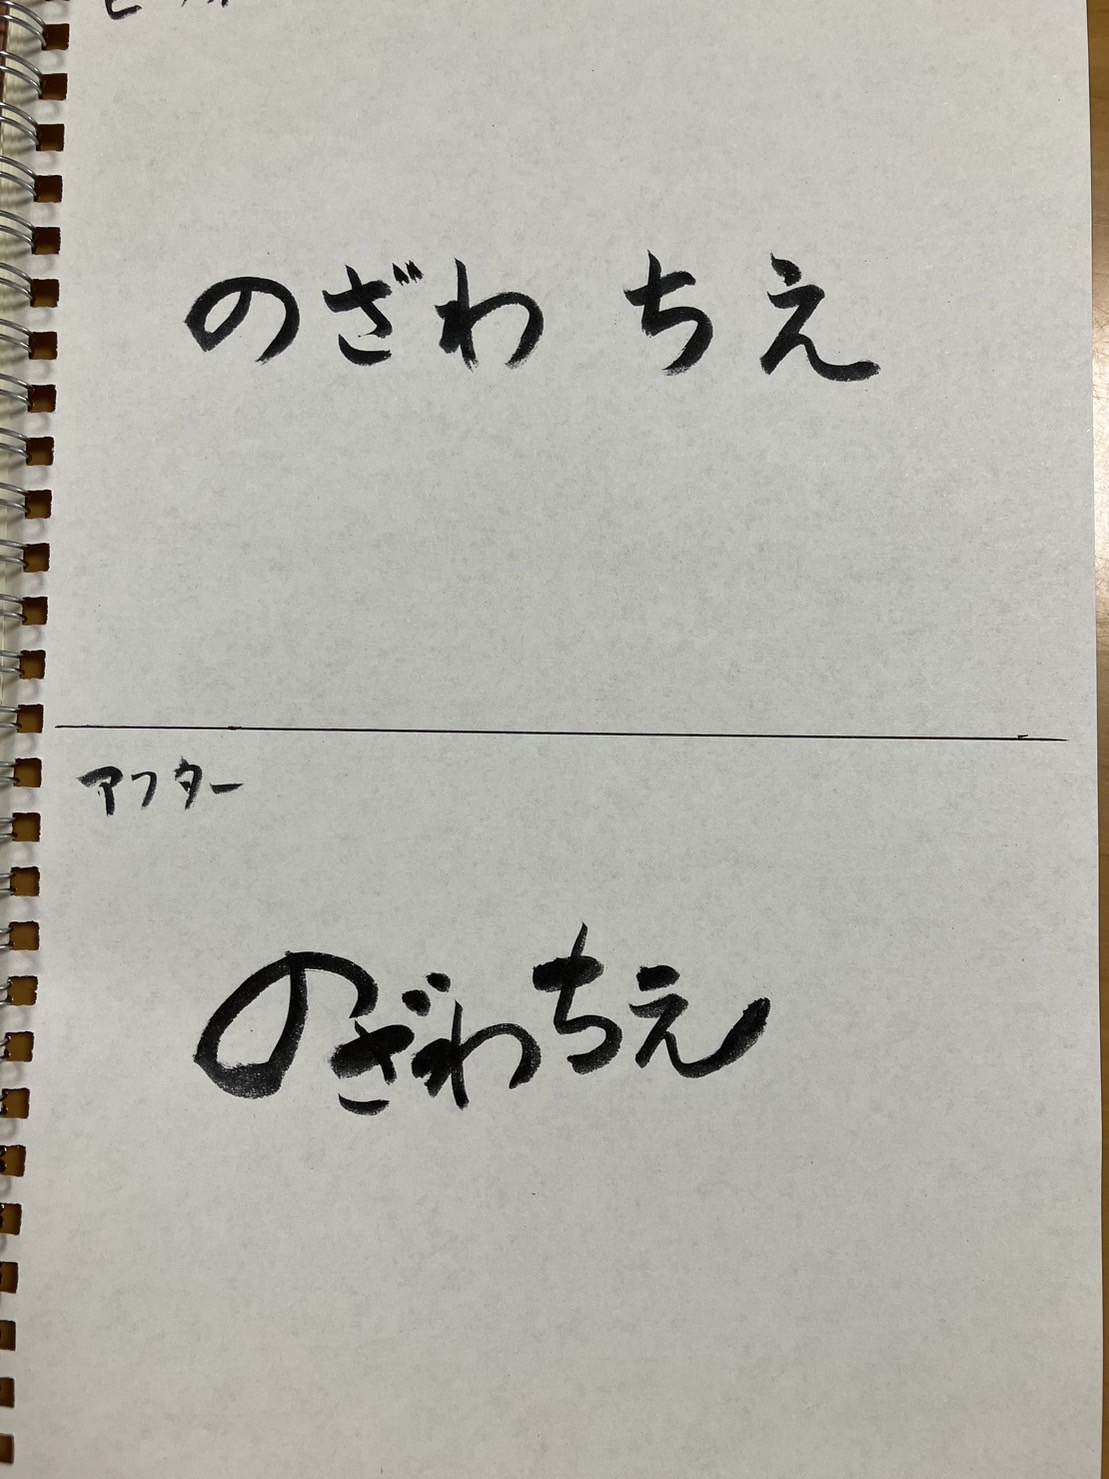 のざわ ちえ
アフター
のざわちえ